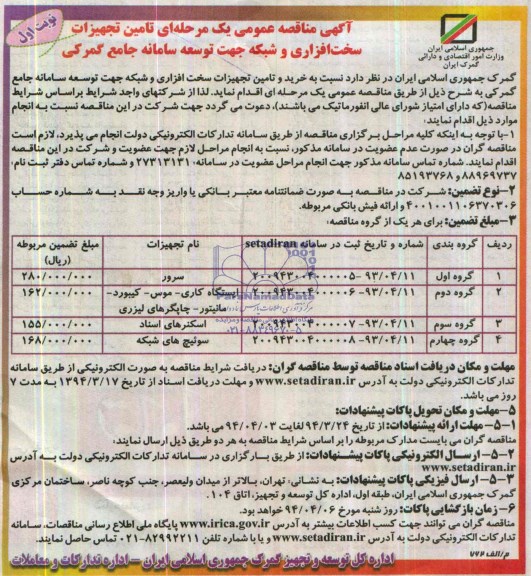 نوبت اول
آگهی مناقصه عمومی یک مرحله‌ای تامین تجهیزات
سخت‌افزاری و شبکه جهت توسعه سامانه جامع گمرکی
جمهوری اسلامی ایران
وزارت امور اقتصادی و دارائی
گمرک ایران
گمرک جمهوری اسلامی ایران در نظر دارد نسبت به خرید و تامین تجهیزات سخت افزاری و شبکه جهت توسعه سامانه جامع
گمرکی به شرح ذیل از طریق مناقصه عمومی یک مرحله ای اقدام نماید. لذا از شرکتهای واجد شرایط براساس شرایط
مناقصه(که دارای امتیاز شورای عالی انفورماتیک می باشند)، دعوت می گردد جهت شرکت در این مناقصه نسبت به انجام
موارد ذیل اقدام نمایند:
۱-با توجه به اینکه کلیه مراحل برگزاری مناقصه از طریق سامانه تدارکات الکترونیکی دولت انجام می پذیرد، لازم است
مناقصه گران در صورت عدم عضویت در سامانه مذکور، نسبت به انجام مراحل لازم جهت عضویت و شرکت در این مناقصه
اقدام نمایند. شماره تماس سامانه مذکور جهت انجام مراحل عضویت در سامانه: ۲۷۳۱۳۱۳۱ و شماره تماس دفتر ثبت نام:
۸۸۹۶۹۷۳۷ و ۸۵۱۹۳۷۶۸
۲-نوع تضمین: شرکت در مناقصه به صورت ضمانتنامه معتبر بانکی یا واریز وجه نقد به شماره حساب
۴۰۰۱۰۰۱۱۰۶۳۷۰۳۰۶ و ارائه فیش بانکی مربوطه.
۳-مبلغ تضمین: برای هر یک از گروه مناقصه:
ردیف گروه بندی شماره و تاریخ ثبت در سامانه setadiran نام تجهیزات مبلغ تضمین مربوطه (ریال)
۱ گروه اول ۹۳/۰۴/۱۱-۲۰۰۹۴۳۰۰۴۰۰۰۰۰۵ سرور ۲۸۰/۰۰۰/۰۰۰
۲ گروه دوم ۹۳/۰۴/۱۱-۲۰۰۹۴۳۰۰۴۰۰۰۰۰۶ ایستگاه کاری-موس-کیبورد- ۱۶۲/۰۰۰/۰۰۰
مانیتور-چاپگرهای لیزری
۳ گروه سوم ۹۳/۰۴/۱۱-۲۰۰۹۴۳۰۰۴۰۰۰۰۰۷ اسکنرهای اسناد ۱۵۵/۰۰۰/۰۰۰
۴ گروه چهارم ۹۳/۰۴/۱۱-۲۰۰۹۴۳۰۰۴۰۰۰۰۰۸ سوئیچ های شبکه ۱۶۸/۰۰۰/۰۰۰
ParsNamadData
۰۲۱-۸۸۳۴۹۶۷۰-۵
مهلت و مکان دریافت اسناد مناقصه توسط مناقصه گران: دریافت شرایط مناقصه به صورت الکترونیکی از طریق سامانه
تدارکات الکترونیکی دولت به آدرس www.setadiran.ir و مهلت دریافت اسناد از تاریخ ۱۳۹۴/۳/۱۷ به مدت ۷
روز می باشد.
۵-مهلت و مکان تحویل پاکات پیشنهادات:
۵-۱-مهلت ارائه پیشنهادات: از تاریخ ۹۴/۳/۲۴ لغایت ۹۴/۰۴/۰۳ می باشد.
مناقصه گران می بایست مدارک مربوطه را بر اساس شرایط مناقصه به هر دو طریق ذیل ارسال نمایند:
۵-۲-ارسال الکترونیکی پاکات پیشنهادات: از طریق بارگزاری در سامانه تدارکات الکترونیکی دولت به آدرس
www.setadiran.ir
۵-۳-ارسال فیزیکی پاکات پیشنهادات: به نشانی: تهران، بالاتر از میدان ولیعصر، جنب کوچه ناصر، ساختمان مرکزی
گمرک جمهوری اسلامی ایران، طبقه اول، اداره کل توسعه و تجهیز، اتاق ۱۰۴.
۶-زمان بازگشایی پاکات: روز شنبه مورخ ۹۴/۰۴/۰۶ خواهد بود.
مناقصه گران می توانند جهت کسب اطلاعات بیشتر به آدرس www.irica.gov.ir پایگاه ملی اطلاع رسانی مناقصات، سامانه
تدارکات الکترونیکی دولت به آدرس www.setadiran.ir و یا با شماره تلفن ۸۲۹۹۲۲۱۱-۰۲۱ تماس حاصل نمایند.
م/الف ۷۷۴
اداره کل توسعه و تجهیز گمرک جمهوری اسلامی ایران - اداره تدارکات و معاملات